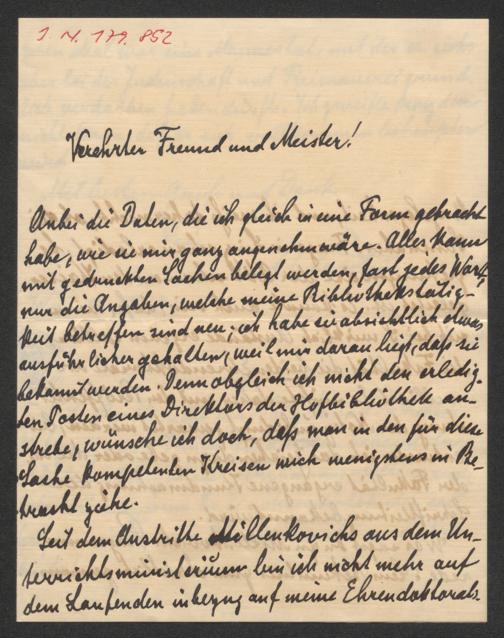 J. N. 179.852
Verehrter Freund und Meister!
Anbei die Daten, die ich gleich in eine Form gebracht
habe, wie sie mir ganz angenehm wäre. Alles kann
mit gedruckten Sachen belegt werden, fast jedes Wort,
nur die Angaben, welche meine Bibliothekstätig-
keit betreffen sind neu; ich habe sie absichtlich etwas
ausführlicher gehalten, weil mir daran liegt, daß sie
bekannt werden. Denn obgleich ich nicht den erledig-
ten Posten eines Direktors der Hofbibliothek an-
strebe, wünsche ich doch, daß man in den für diese
Sache kompetenten Kreisen mich wenigstens in Be-
tracht ziehe.
Seit dem Austritte Millenkovichs aus dem Un-
terrichtsministerium bin ich nicht mehr auf
dem Laufenden in bezug auf meine Ehrendoktorats-